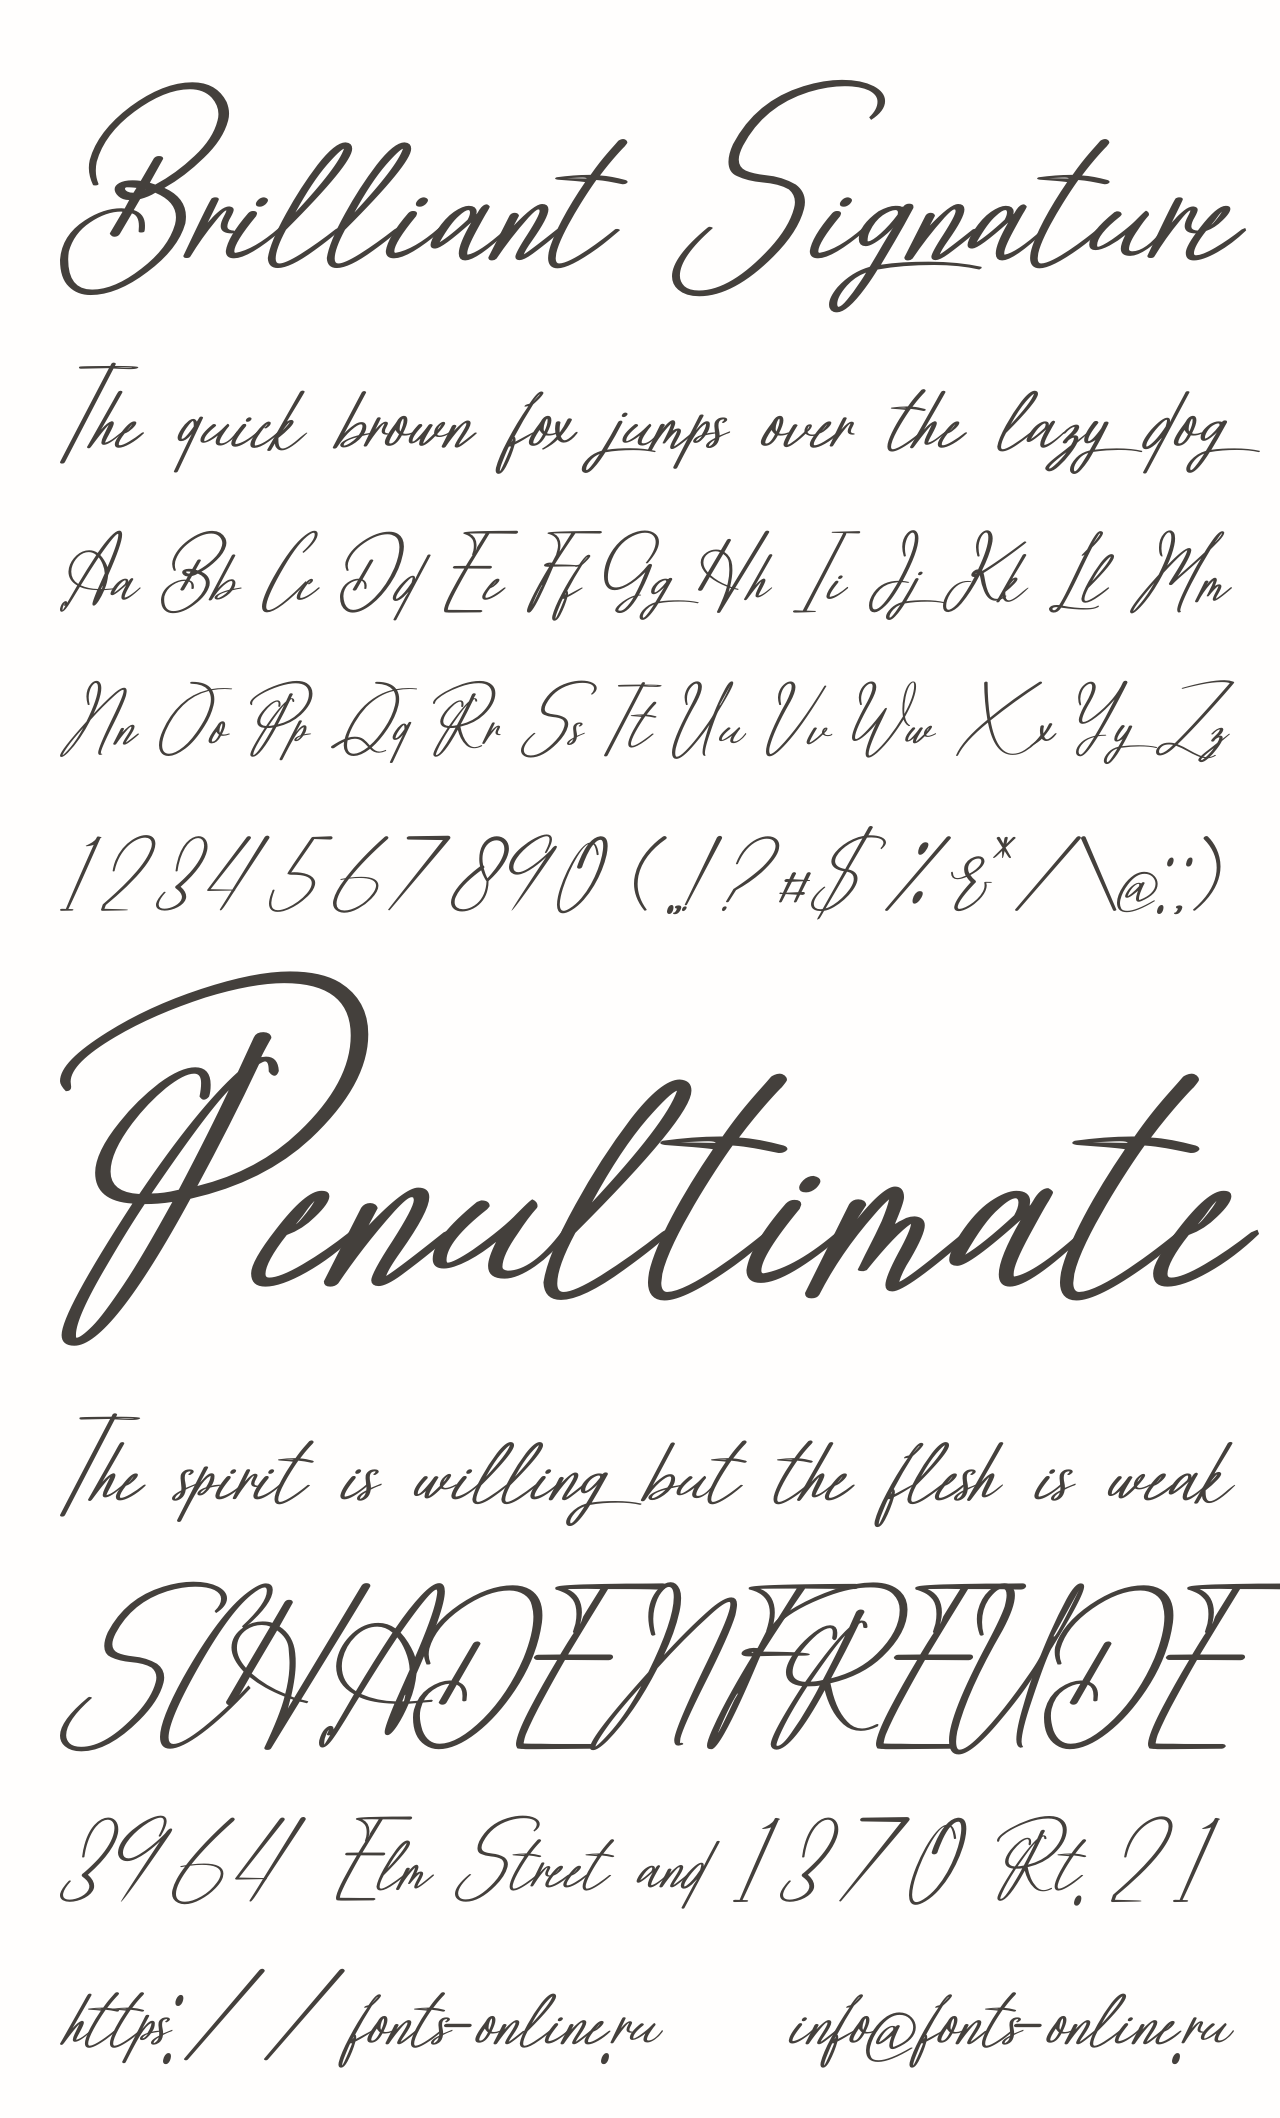 Brilliant Signature
The quick brown fox jumps over the lazy dog
Aa Bb Cc Dd Ee Ff Gg Hh Ii Jj Kk Ll Mm
Nn Oo Pp Qq Rr Ss Tt Uu Vv Ww Xx Yy Zz
1234567890 (.,!?#$%&*/\@:;)
Penultimate
The spirit is willing but the flesh is weak
SCHADENFREUDE
3964 Elm Street and 1370 Rt. 21
https://fonts-online.ru info@fonts-online.ru